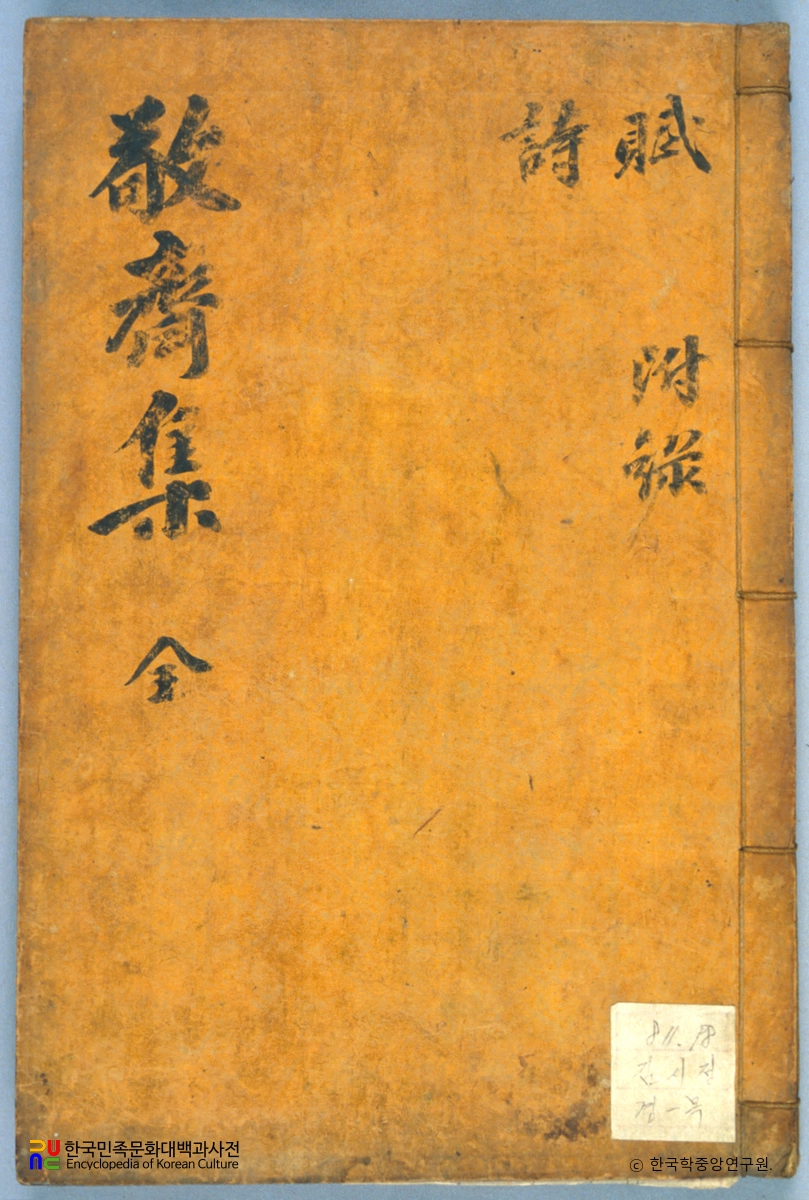 賦
詩
附錄
敬齋集 全
811.98
한국민족문화대백과사전
Encyclopedia of Korean Culture
ⓒ 한국학중앙연구원.